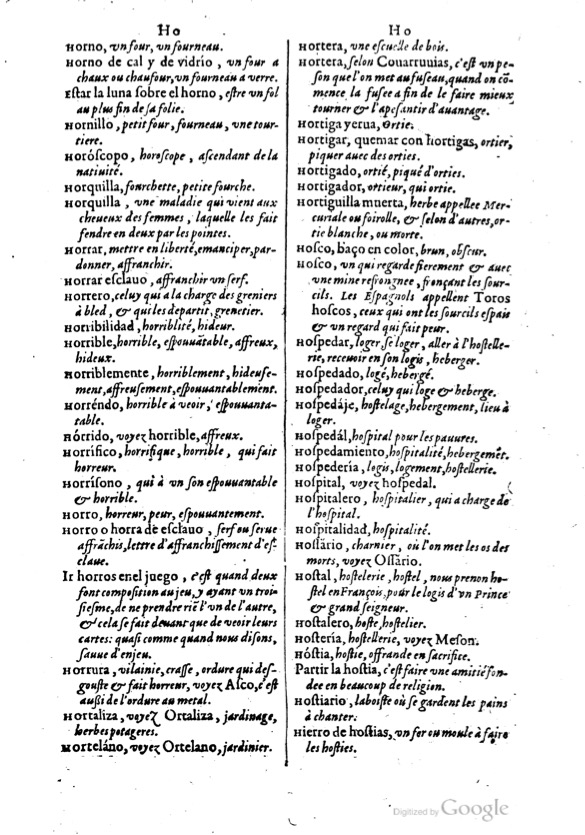 Ho
Horno, vn four, vn fourneau.
Horno de cal y de vidrio, vn four a
chaux ou chaufour, vn fourneau a verre.
Estar la luna sobre el horno, estre vn fol
au plus fin de sa folie.
Hornillo, petit four, fourneau, vne tour-
tiere.
Horóscopo, horoscope, ascendant de la
natiuité.
Horquilla, fourchette, petite fourche.
Horquilla, vne maladie qui vient aux
cheueux des femmes, laquelle les fait
fendre en deux par les pointes.
Horrar, mettre en liberté, emanciper, par-
donner, affranchir.
Horrar esclauo, affranchir vn serf.
Horrero, celuy qui a la charge des greniers
à bled, & qui les departit, grenetier.
Horribilidad, horriblité, hideur.
Horrible, horrible, espouuãtable, affreux,
hideux.
Horriblemente, horriblement, hideuse-
ment, affreusement, espouuantablement.
Horréndo, horrible à veoir, espouuanta-
table.
Hórrido, voyez horrible, affreux.
Horrífico, horrifique, horrible, qui fait
horreur.
Horrísono, qui à vn son espouuantable
& horrible.
Horro, horreur, peur, espouuantement.
Horro o horra de esclauo, serf ou serue
affrãchis, lettre d'affranchissement d'es-
claue.
Ir horros en el juego, c'est quand deux
font composition au jeu, y ayant vn troi-
siesme, de ne prendre riẽ l'vn de l'autre,
& cela se fait deuant que de veoir leurs
cartes: quasi comme quand nous disons,
sauue d'enjeu.
Horrura, vilainie, crasse, ordure qui des-
gouste & fait horreur, voyez Asco, c'est
aussi de l'ordure au metal.
Hortaliza, voyez Ortaliza, jardinage,
herbes potageres.
Horteláno, voyez Ortelano, jardinier.
Ho
Hortera, vne escuelle de bois.
Hortera, selon Couarruuias, c'est vn pe-
son que l'on met au fuseau, quand on cõ-
mence la fusee a fin de le faire mieux
tourner & l'apesantir d'auantage.
Hortiga yerua, Ortie.
Hortigar, quemar con hortigas, ortier,
piquer auec des orties.
Hortigado, ortié, piqué d'orties.
Hortigador, ortieur, qui ortie.
Hortiguilla muerta, herbe appellee Mer-
curiale ou foirolle, & selon d'autres, or-
tie blanche, ou morte.
Hosco, baço en color, brun, obscur.
Hosco, vn qui regarde fierement & auec
vne mine refrongnee, fronçant les sour-
cils. Les Espagnols appellent Toros
hoscos, ceux qui ont les sourcils espais
& vn regard qui fait peur.
Hospedar, loger, se loger, aller à l'hostelle-
rie, receuoir en son logis, heberger.
Hospedado, logé, hebergé.
Hospedador, celuy qui loge & heberge.
Hospedáje, hostelage, hebergement, lieu à
loger.
Hospedál, hospital pour les pauures.
Hospedamiento, hospitalité, hebergemẽt.
Hospedería, logis, logement, hostellerie.
Hospital, voyez hospedal.
Hospitalero, hospitalier, qui a charge de
l'hospital.
Hospitalidad, hospitalité.
Hossàrio, charnier, où l'on met les os des
morts, voyez Ossario.
Hostal, hostelerie, hostel, nous prenon ho-
stel en François, pour le logis d'vn Prince
& grand seigneur.
Hostalero, hoste, hostelier.
Hostería, hostellerie, voyez Meson.
Hóstia, hostie, offrande en sacrifice.
Partir la hostia, c'est faire vne amitié fon-
dee en beaucoup de religion.
Hostiario, la boiste où se gardent les pains
à chanter.
Hierro de hostias, vn fer ou moule à faire
les hosties.
Digitized by Google